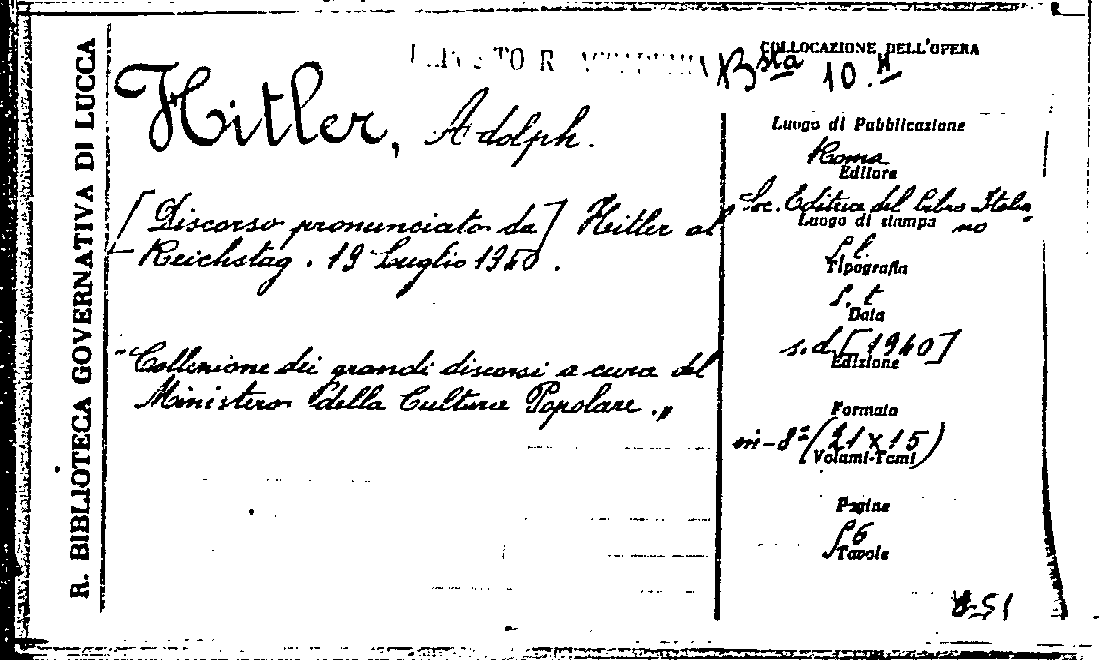 R. BIBLIOTECA GOVERNATIVA DI LUCCA
COLLOCAZIONE DELL'OPERA
Bsta 10.
Hitler, Adolph.
[Discorso pronunciato da] Hitler al
Reichstag. 19 Luglio 1940.
"Collezione dei grandi discorsi a cura del
Ministero della Cultura Popolare."
Luogo di Pubblicazione
Roma
Editore
Soc. Editrice del Libro Italia
no
Luogo di stampa
s. l.
Tipografia
s. t.
Data
s. d. [1940]
Edizione
Formato
in-8° (21x15)
Volumi-Tomi
Pagine
Tavole